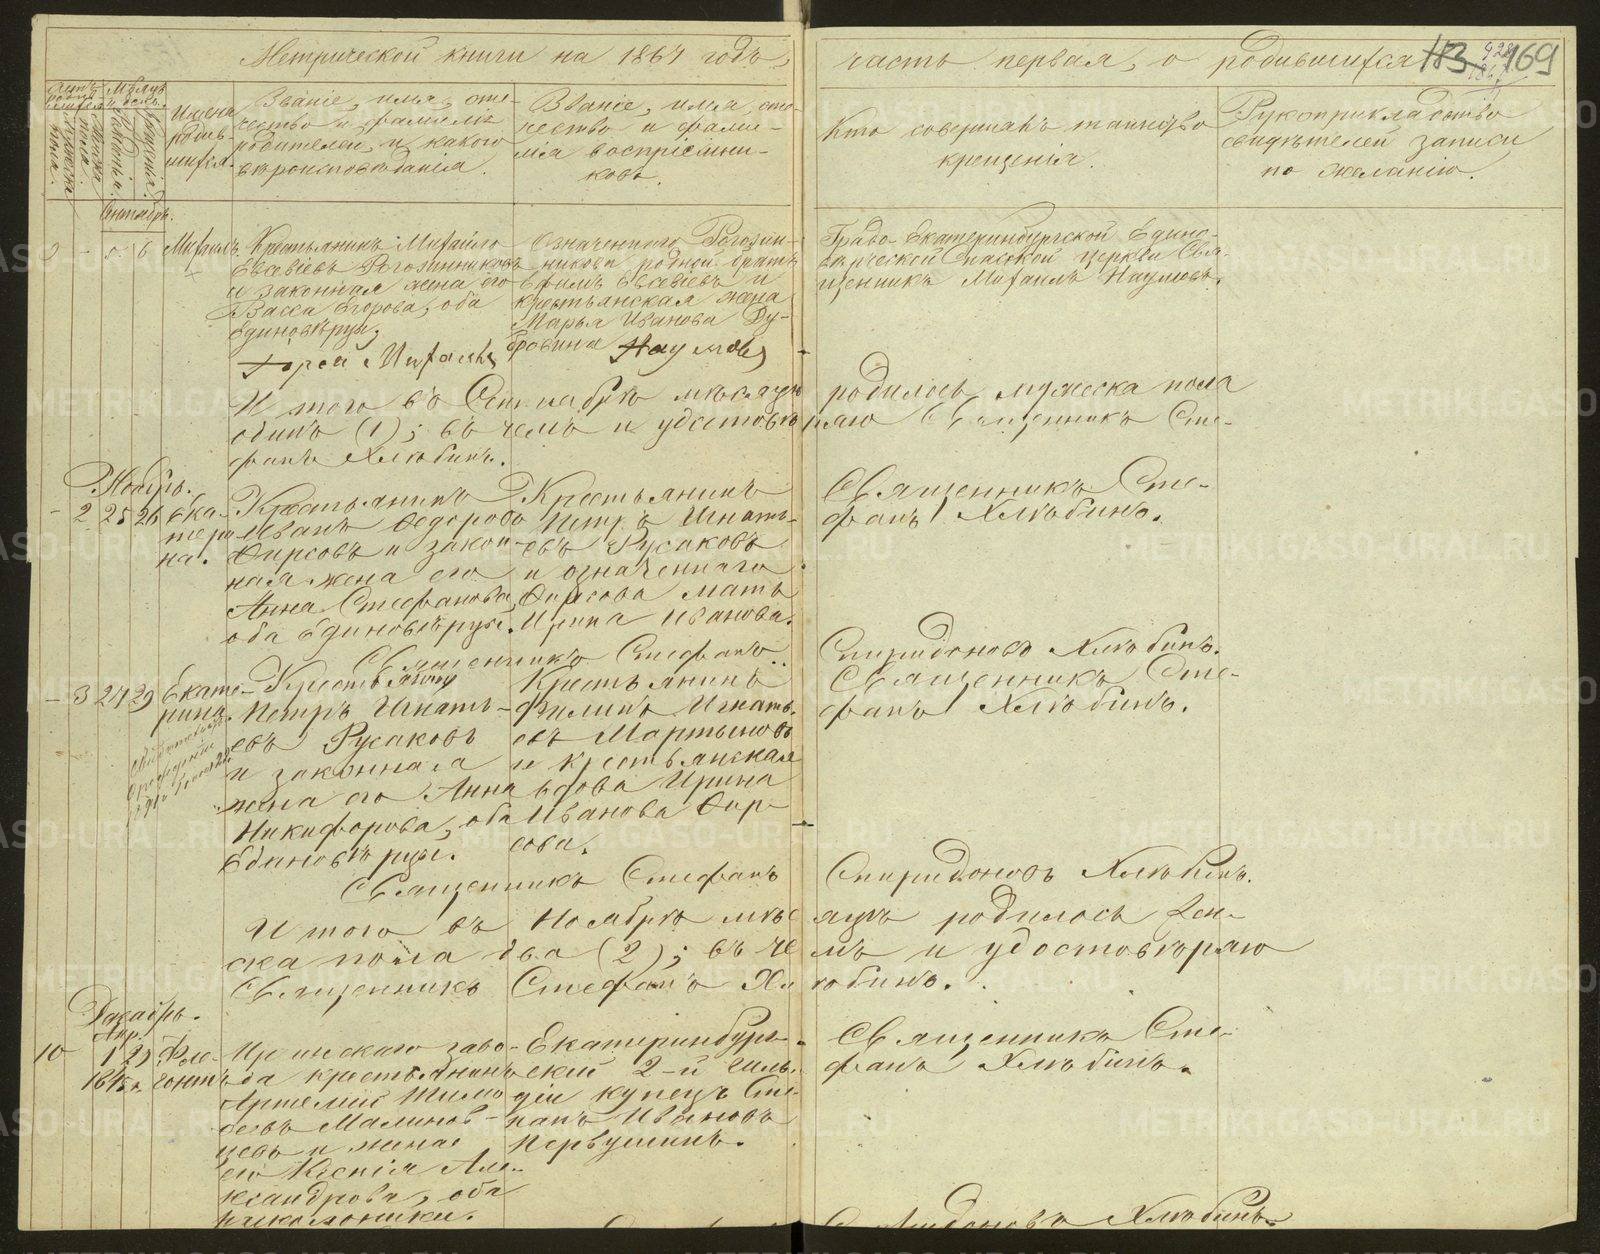 Метрической книги на 1864 годъ,
часть первая, о родившихся
113 169
Имена родив-
шихся.
Званіе, имя, оте-
чество и фамилія
родителей, и какого
вѣроисповѣданія.
Званіе, имя, оте-
чество и фами-
лія воспріемни-
ковъ.
Кто совершалъ таинство
крещенія.
Рукоприкладство
свидѣтелей записи
по желанію.
Сентябрь.
5 6 Михаилъ
Крестьянинъ Михайло
Евсевіевъ Рогозинниковъ
и законная жена его
Васса Егорова, оба
единовѣрцы,
Означеннаго Рогозин-
никова родной братъ
Ефимъ Евсевіевъ и
крестьянская жена
Марья Иванова Ду-
бровина
Градо-Екатеринбургской Едино-
вѣрческой Спасской церкви Свя-
щенникъ Михаилъ Наумовъ.
Іерей Михаилъ Наумовъ
И того въ Сентябрѣ мѣсяцѣ родилось мужеска пола
одинъ (1); въ чемъ и удостовѣряю Священникъ Сте-
фанъ Хлѣбинъ.
Ноябрь.
- 2 25 26 Ека-
тери-
на.
Крестьянинъ
Иванъ Ѳедоровъ
Фирсовъ и закон-
ная жена его
Анна Стефанова,
оба Единовѣрцы.
Крестьянинъ
Петръ Игнать-
евъ Русаковъ
и означеннаго
Фирсова мать
Ирина Иванова.
Священникъ Сте-
фанъ Хлѣбинъ.
Священникъ Стефанъ Спиридоновъ Хлѣбинъ.
- 3 27 29 Екате-
рина.
Крестьянинъ
Петръ Игнать-
евъ Русаковъ
и законная
жена его Анна
Никифорова, оба
Единовѣрцы.
Крестьянинъ
Филипъ Игнать-
евъ Мартыновъ
и крестьянская
вдова Ирина
Иванова Фир-
сова.
Священникъ Сте-
фанъ Хлѣбинъ.
Священникъ Стефанъ Спиридоновъ Хлѣбинъ.
И того въ Ноябрѣ мѣсяцѣ родилось жен-
ска пола два (2); въ чемъ и удостовѣряю
Священникъ Стефанъ Хлѣбинъ.
Декабрь.
10
Фле-
гонтъ
завода крестьянинъ
Артемій Тимо-
феевъ Малинов-
цевъ и жена
его Ксенія Але-
ксандрова, оба
Екатеринбург-
скій 2-й гиль-
діи купецъ Сте-
панъ Ивановъ
Первушинъ.
Священникъ Сте-
фанъ Хлѣбинъ.
Хлѣбинъ
METRIKI.GASO-URAL.RU